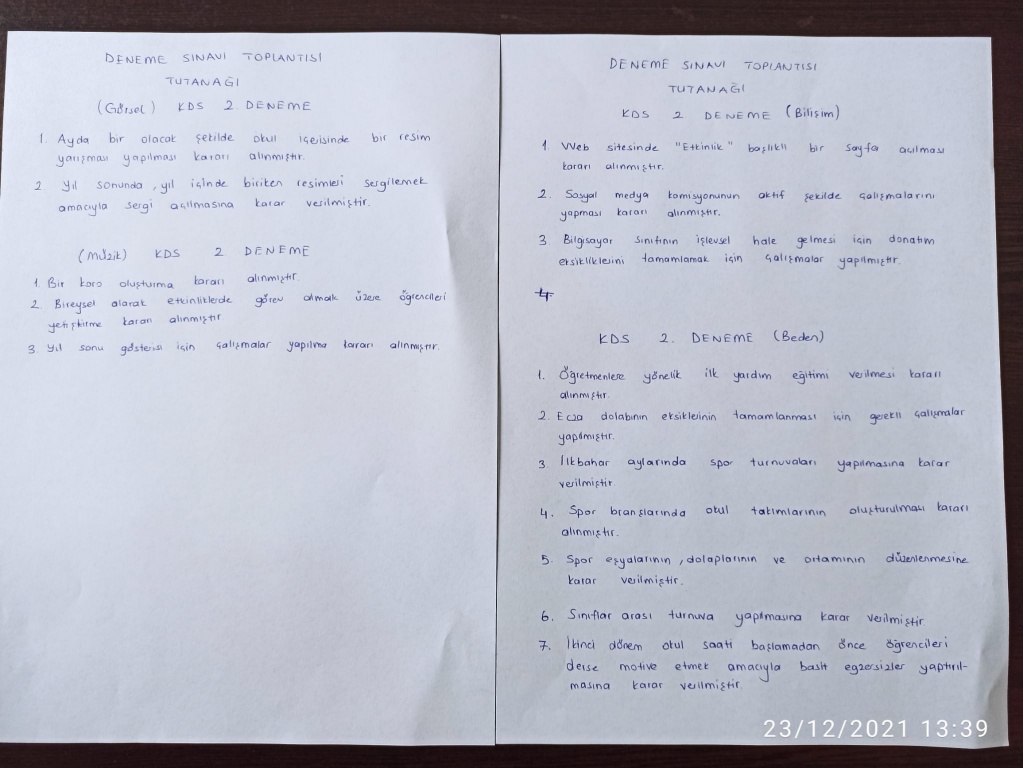 DENEME SINAVI TOPLANTISI
TUTANAĞI
(Görsel) KDS 2 DENEME
1. Ayda bir olacak şekilde okul içerisinde bir resim
yarışması yapılması kararı alınmıştır.
2 Yıl sonunda, yıl içinde biriken resimleri sergilemek
amacıyla sergi açılmasına karar verilmiştir.
(Müzik) KDS 2 DENEME
1. Bir koro oluşturma kararı alınmıştır.
2 Bireysel olarak etkinliklerde görev almak üzere öğrencileri
yetiştirme kararı alınmıştır
3. Yıl sonu gösterisi için çalışmalar yapılma kararı alınmıştır.
DENEME SINAVI TOPLANTISI
TUTANAĞI
KDS 2 DENEME (Bilişim)
1. Web sitesinde "Etkinlik" başlıklı bir sayfa açılması
kararı alınmıştır.
2. Sosyal medya komisyonunun aktif şekilde çalışmalarını
yapması kararı alınmıştır.
3 Bilgisayar sınıfının işlevsel hale gelmesi için donatım
eksikliklerini tamamlamak için çalışmalar yapılmıştır.
KDS 2. DENEME (Beden)
1. Öğretmenlere yönelik ilk yardım eğitimi verilmesi kararı
alınmıştır.
2. Ecza dolabının eksiklerinin tamamlanması için gerekli çalışmalar
yapılmıştır.
3. İlkbahar aylarında spor turnuvaları yapılmasına karar
verilmiştir.
4. Spor branşlarında okul takımlarının oluşturulması kararı
alınmıştır.
5. Spor eşyalarının, dolaplarının ve ortamının düzenlenmesine
karar verilmiştir.
6. Sınıflar arası turnuva yapılmasına karar verilmiştir
7. İkinci dönem okul saati başlamadan önce öğrencileri
derse motive etmek amacıyla basit egzersizler yaptırıl-
masına karar verilmiştir.
23/12/2021 13:39